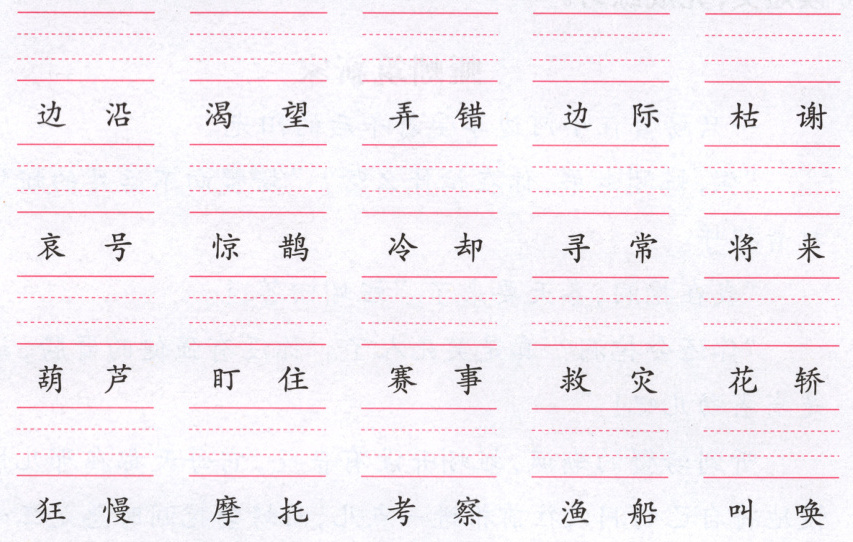 边沿 渴望 弄错 边际 枯谢
哀号 惊鹊 冷却 寻常 将来
葫芦 盯住 赛事 救灾 花轿
狂慢 摩托 考察 渔船 叫唤